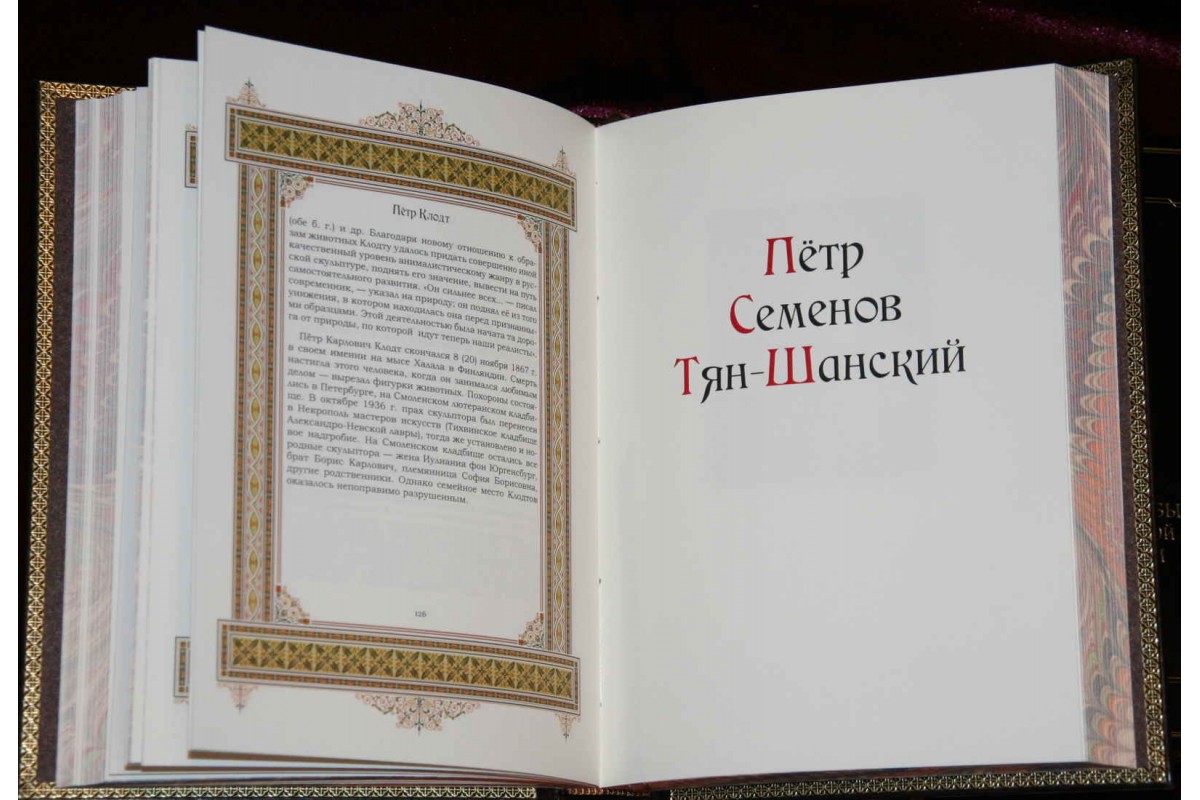 Пётр Клодт
(обе б. г.) и др. Благодаря новому отношению к обра-
зам животных Клодту удалось придать совершенно иной
качественный уровень анималистическому жанру в рус-
ской скульптуре, поднять его значение, вывести на путь
самостоятельного развития. «Он сильнее всех... — писал
современник, — указал на природу; он поднял её из того
унижения, в котором находилась она перед признанны-
ми образцами. Этой деятельностью была начата та доро-
га от природы, по которой идут теперь наши реалисты».
Пётр Карлович Клодт скончался 8 (20) ноября 1867 г.
в своем имении на мысе Халала в Финляндии. Смерть
настигла этого человека, когда он занимался любимым
делом — вырезал фигурки животных. Похороны состоя-
лись в Петербурге, на Смоленском лютеранском кладби-
ще. В октябре 1936 г. прах скульптора был перенесен
в Некрополь мастеров искусств (Тихвинское кладбище
Александро-Невской лавры), тогда же установлено и но-
вое надгробие. На Смоленском кладбище остались все
родные скульптора — жена Иулиания фон Юргенсбург,
брат Борис Карлович, племянница София Борисовна,
другие родственники. Однако семейное место Клодтов
оказалось непоправимо разрушенным.
126
Пётр
Семенов
Тян-Шанский